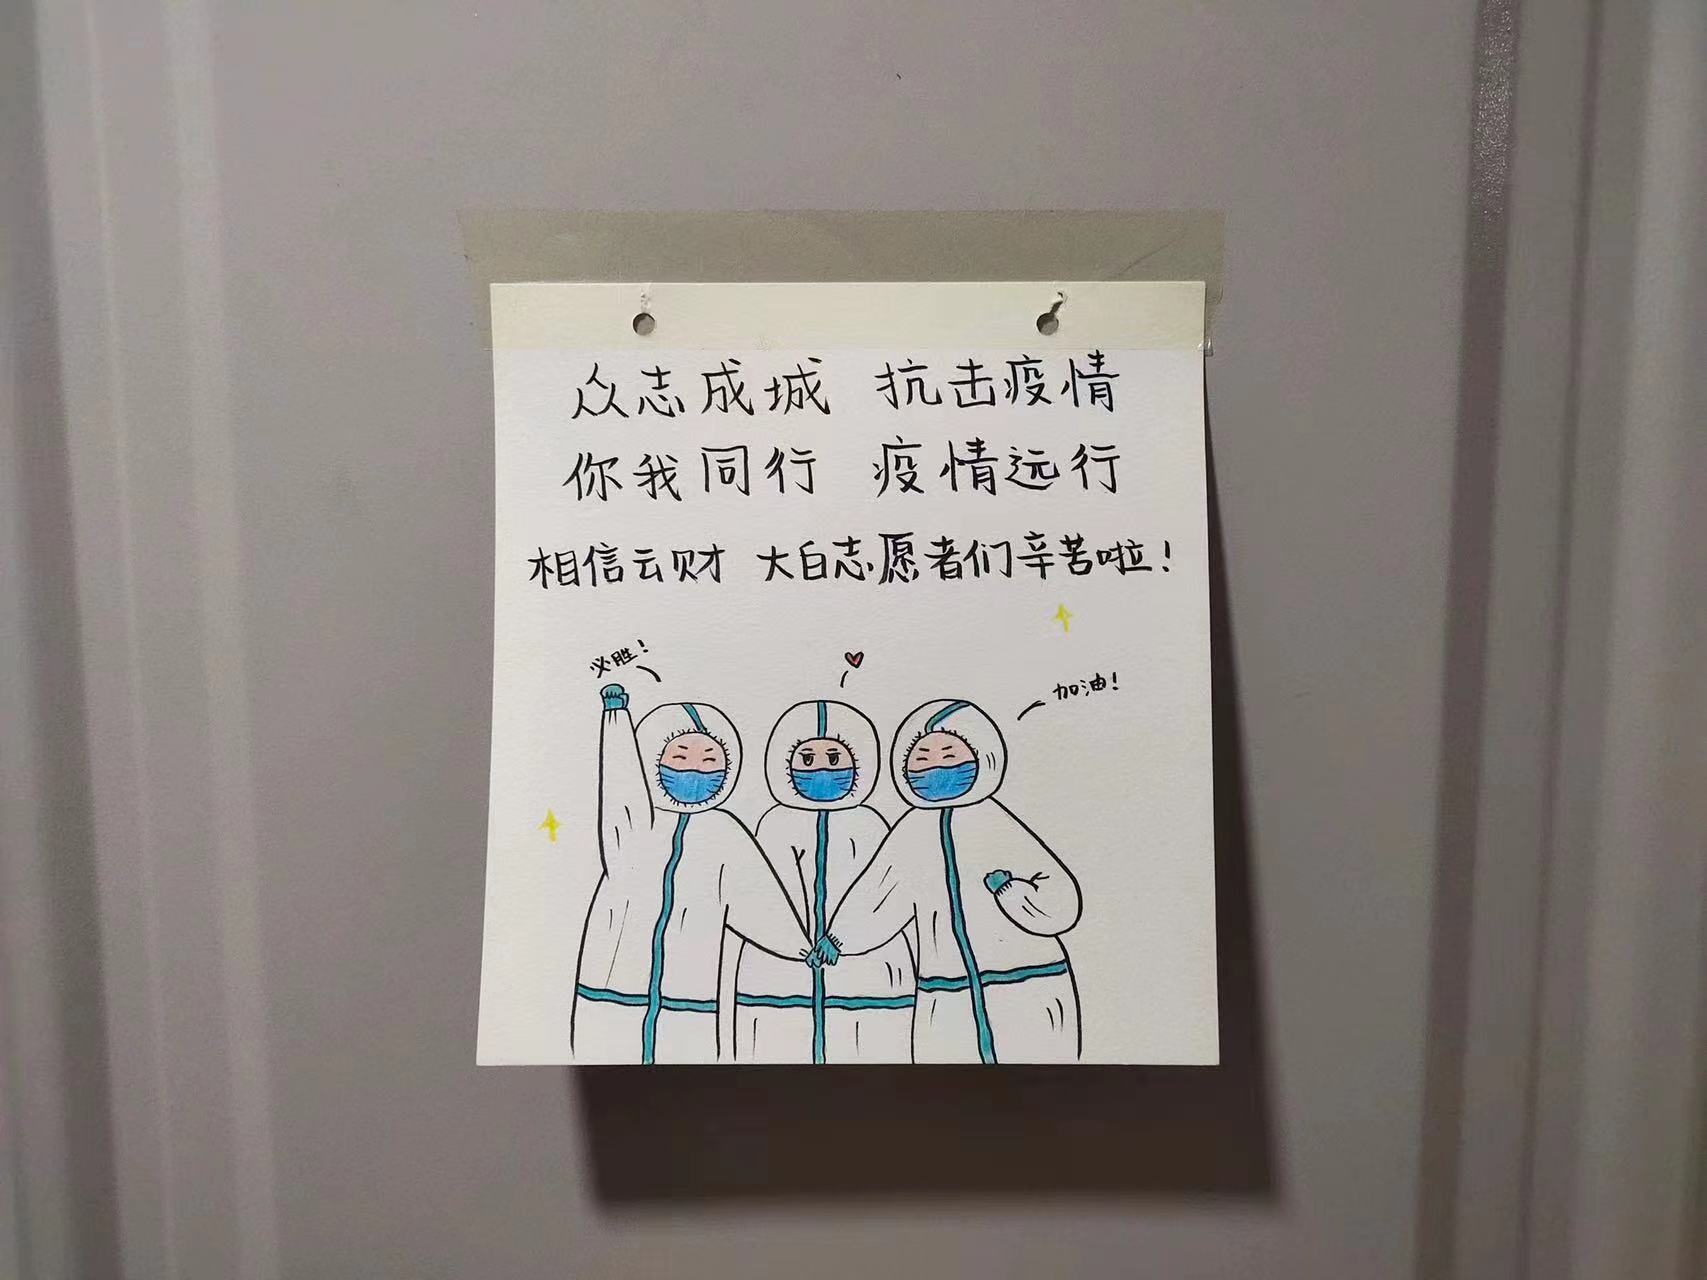 众志成城 抗击疫情
你我同行 疫情远行
相信云财 大白志愿者们辛苦啦！
必胜！
加油！